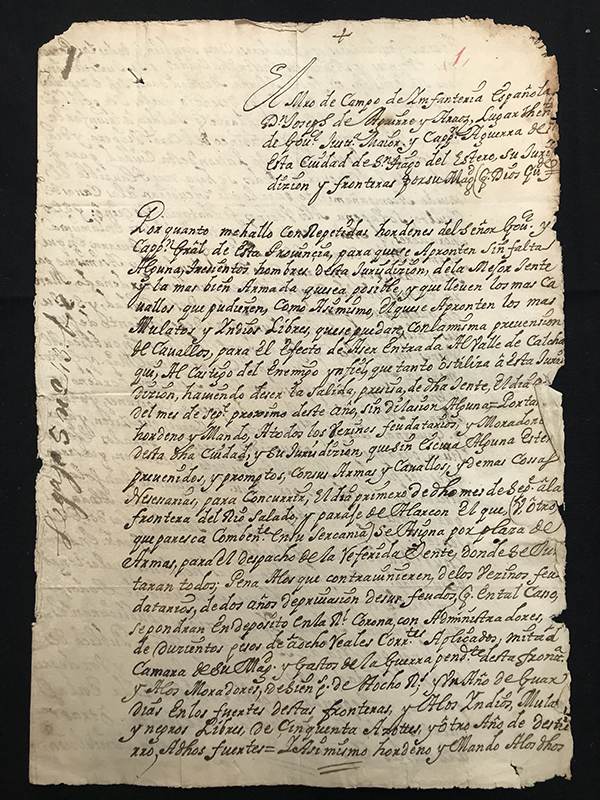 1
El Mro de Campo de Infanteria Española
Dn Joseph de Aguirre y Araoz, Lugar then
de Govr. Justa. Maior, y Cappn. Aguerra de
Esta Ciudad de Sntiago del Estero, su Juri
dizion y fronteras por su Magd (q. Dios Gue
Por quanto mehallo Con Repetidas hordenes del Señor Govr. y
Cappn. Gral de Esta Provincia, para quese Apronten Sin falta
Alguna, tresientos hombres desta Jurisdizion, dela Mejor Jente
y la mas bien Armada quesea posible, y quelleven los mas ca
vallos que pudieren, Como Asimismo, el quese Apronten los mas
Mulatos y Indios Libres, quese puedan, Con lamisma prevension
de Cavallos, para El Efecto de Aser Entrada Al Valle de Calcha
qui, Al Castigo del Enemigo ynfiel, que tanto ostiliza â Esta Juris
dizion, haviendo deser la salida, presisa, de dha Jente, El dia
del mes de Sepe. proximo deste año, sin dilasion Alguna = Portan
hordeno y Mando, Atodos los Vezinos feudatarios, y Moradores
desta dha Ciudad, y Su Jurisdizion, que sin Escusa Alguna Esten
prevenidos, y promptos, Consus Armas y Cavallos, y demas Cossas
Nesesarias, para Concurrir, El dia primero de dho mes de Sepe. âla
frontera del Rio Salado, y paraje de Alarcon El que, (û Otro,
que paresca Combente. Enlu Sercania) Se Asigna por plaza de
Armas, para El despacho de la Referida Jente, donde Se Jun
taran todos; Pena Alos que contravinieren, delos Vezinos feu
datarios, de dos años deprivasion desus feudos, (q. En tal Caso,
sepondran En deposito Enla Rl. Corona, con Administradores,
de Duzientos pesos de âocho Reales Corrtes. Aplicados, mitad
Camara de Su Magd. y Gastos de la Guerra pendte. desta frontra.
y Alos Moradores, de Sien ps. de Aocho Rs. y Vn Año de Guar
dias Enlos fuertes destas fronteras, y Alos Yndios, Mulas
y negros Libres, de Cinquenta Asotes, y Otro Año de desti
erro, Adhos fuertes = Y Asimismo hordeno y Mando Alos dhos